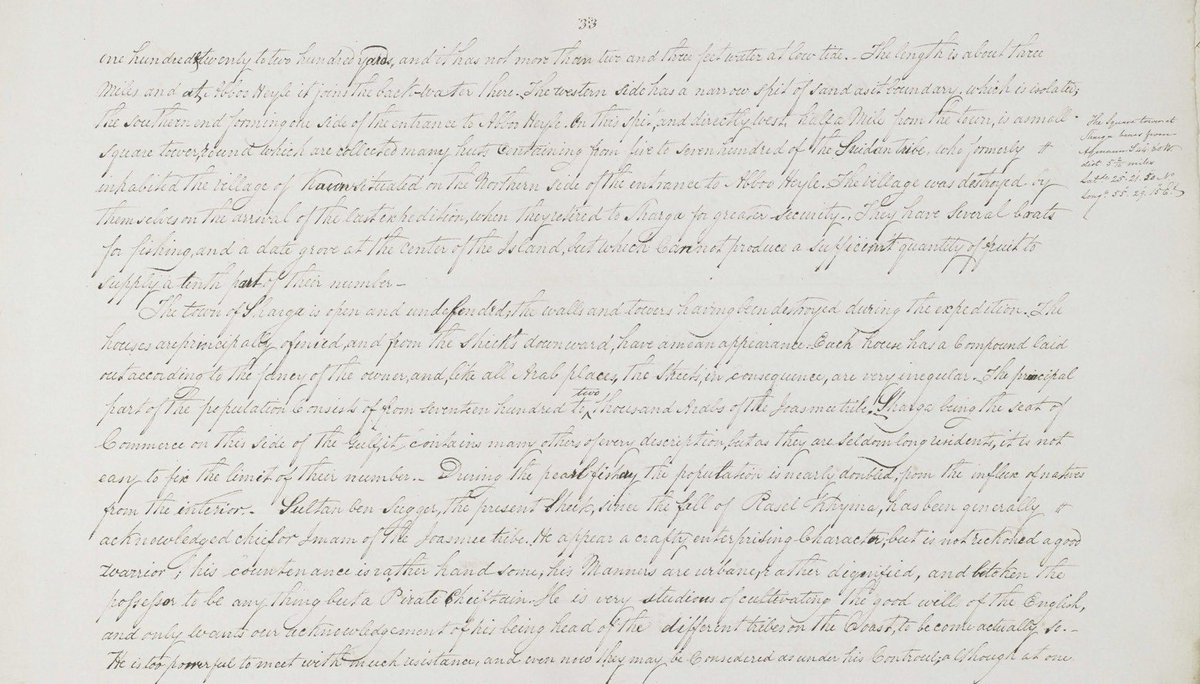 33
one hundred & twenty to two hundred yards, and it has not more than two and three feet water at low tide. - The length is about three
Miles and at Abboo Heyle it joins the back-water there. The western side has a narrow spit of sand as it boundary, which is isolated;
the Southern end forming one side of the entrance to Abboo Heyle. On this spit, and directly west, half a Mile from the town, is a small
square tower, round which are collected many huts Containing from five to seven hundred of the Suidan tribe, who formerly
inhabited the village of situated on the Northern side of the entrance to Abboo Heyle. The village was destroyed by
themselves on the arrival of the last expedition, when they retired to Sharga for greater Security. - They have several boats
for fishing, and a date grove at the center of the Island, but which Cannot produce a Sufficient quantity of fruit to
supply a tenth part of their number -
The town of Sharga is open and undefended, the walls and towers having been destroyed during the expedition. The
houses are principally of mud, and from the Shieck's downward, have a mean appearance - Each house has a Compound laid
out according to the fancy of the owner, and, like all Arab places, the streets, in consequence, are very irregular - The principal
part of the population Consists of from seventeen hundred to two thousand Arabs of the Joasmee tribe. Sharga being the seat of
Commerce on this side of the Gulf, it contains many others of every description, but as they are seldom long residents, it is not
easy to fix the limit of their number. - During the pearl fishery the population is nearly doubled, from the influx of natives
from the interior. - Sultan ben Sugger, the present Sheck, since the fall of Rasel Khyma, has been generally
acknowledged chief or Imam of the Joasmee tribe. He appear a crafty enterprising Character, but is not reckoned a good
warrior; his countenance is rather hand some, his Manners are urbane, rather dignified, and betoken the
possessor to be any thing but a Pirate Chieftain. He is very studious of cultivating the good will of the English,
and only wants our acknowledgement of his being head of the different tribes on the Coast, to become actually so. -
He is too powerful to meet with much resistance, and even now they may be Considered as under his Controul, although at one
The Square tower at
Sharga bears from
dist 5 miles
Latde 25. 21. N.
Longe 55. 27. E.